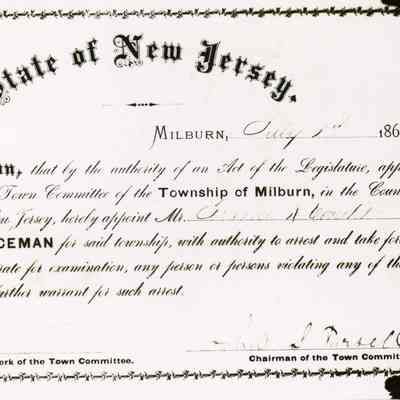 State of New Jersey.
MILBURN, July 1st 186
n, that by the authority of an Act of the Legislature, app
Town Committee of the Township of Milburn, in the Coun
Jersey, hereby appoint Mr.
CEMAN for said township, with authority to arrest and take for
rate for examination, any person or persons violating any of th
further warrant for such arrest.
erk of the Town Committee.
Chairman of the Town Committ